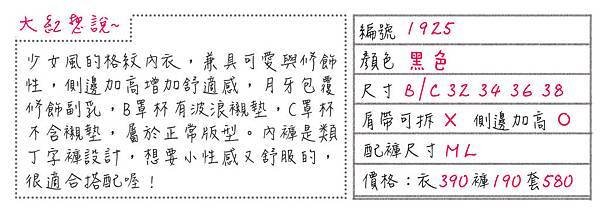 大紅想說~
少女風的格紋內衣，兼具可愛與修飾
性，側邊加高增加舒適感，月牙包覆
修飾副乳，B罩杯有波浪襯墊，C罩杯
不含襯墊，屬於正常版型。內褲是類
丁字褲設計，想要小性感又舒服的，
很適合搭配喔！
編號 1925
顏色 黑色
尺寸 B/C 32 34 36 38
肩帶可拆 X 側邊加高 O
配褲尺寸 ML
價格：衣390褲190套580